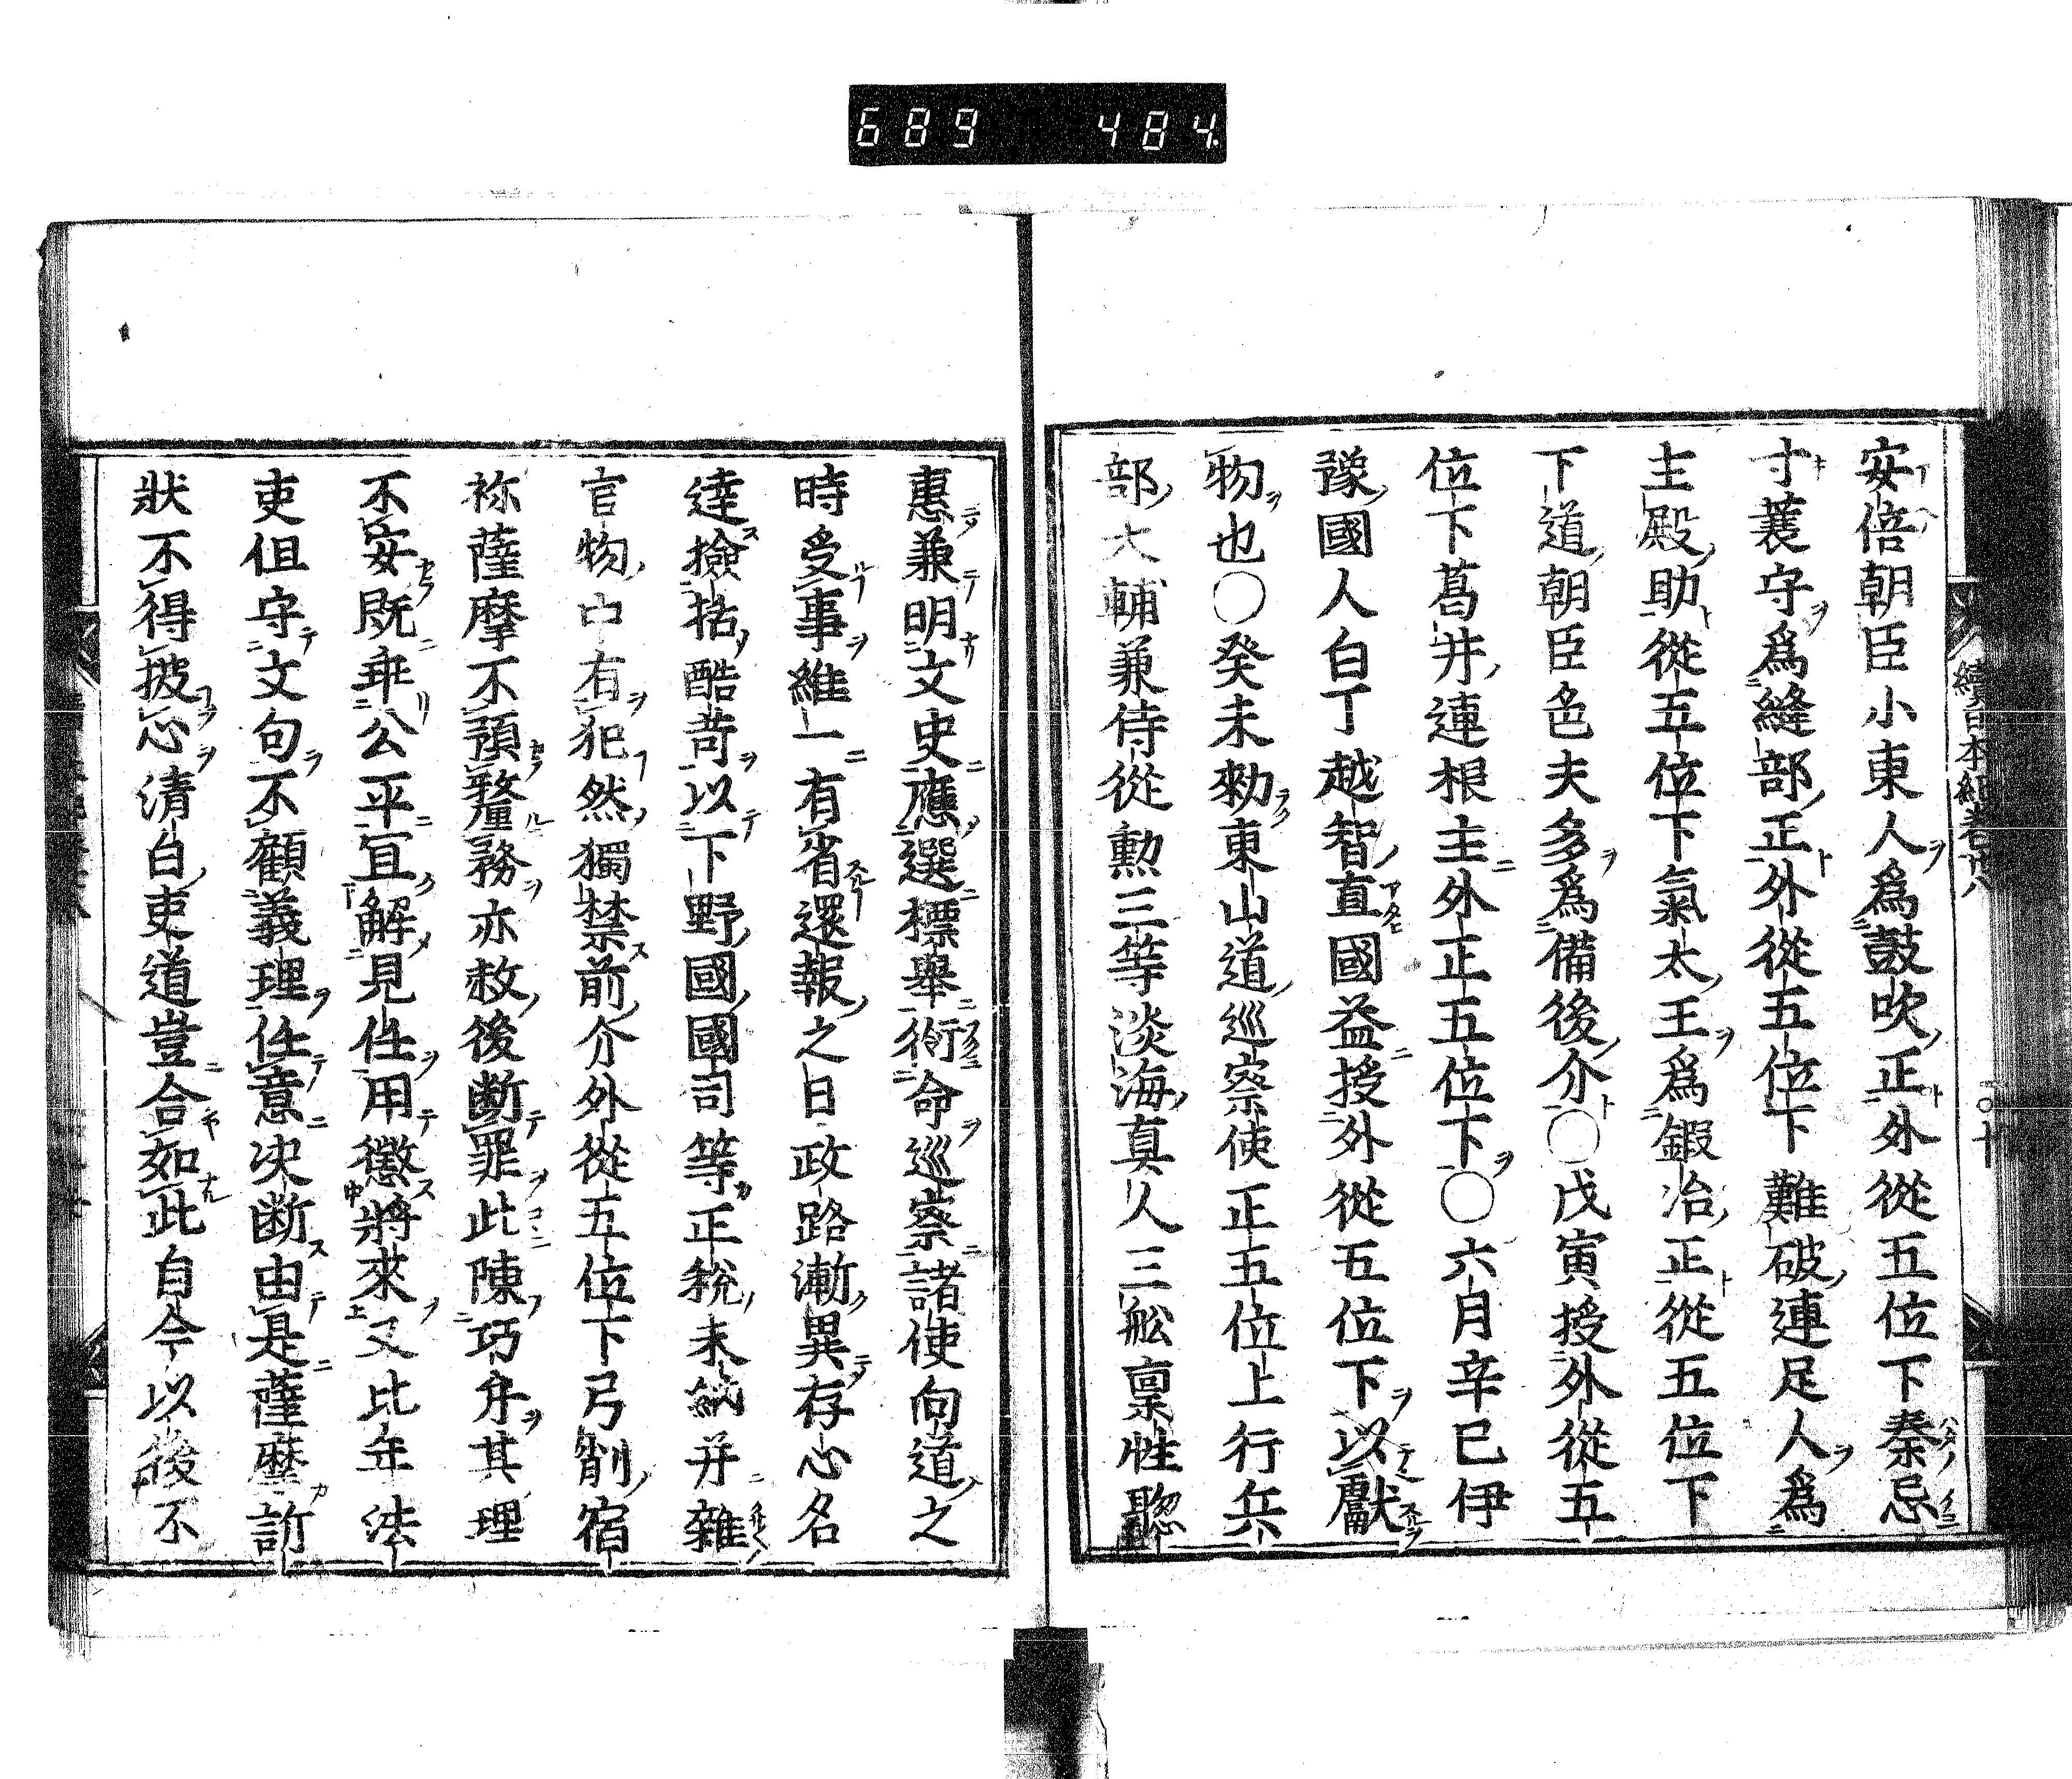 689 484
安倍朝臣小東人爲鼓吹正外從五位下秦忌
寸蓑守爲縫部正外從五位下難破連足人爲
主殿助從五位下氣太王爲鍜冶正從五位下
下道朝臣色夫多爲備後介○戊寅授外從五
位下葛井連根主外正五位下○六月辛巳伊
豫國人白丁越智直國益授外從五位下以獻
物也○癸未勑東山道巡察使正五位上行兵
部大輔兼侍從勲三等淡海真人三舩禀性聦
惠兼明文史應選標舉銜命巡察諸使向道之
時受事維一有省還報之日政路漸異存心名
達撿括酷苛以下野國國司等正税未納并雜
官物中有犯然獨禁前介外從五位下弓削宿
祢薩摩不預釐務亦赦後断罪此陳巧弁其理
不安既乖公平冝解見任用懲將來又比年法
吏但守文句不顧義理任意决断由是薩摩訴
狀不得披心清白吏道豈合如此自今以後不
續日本紀卷廿八